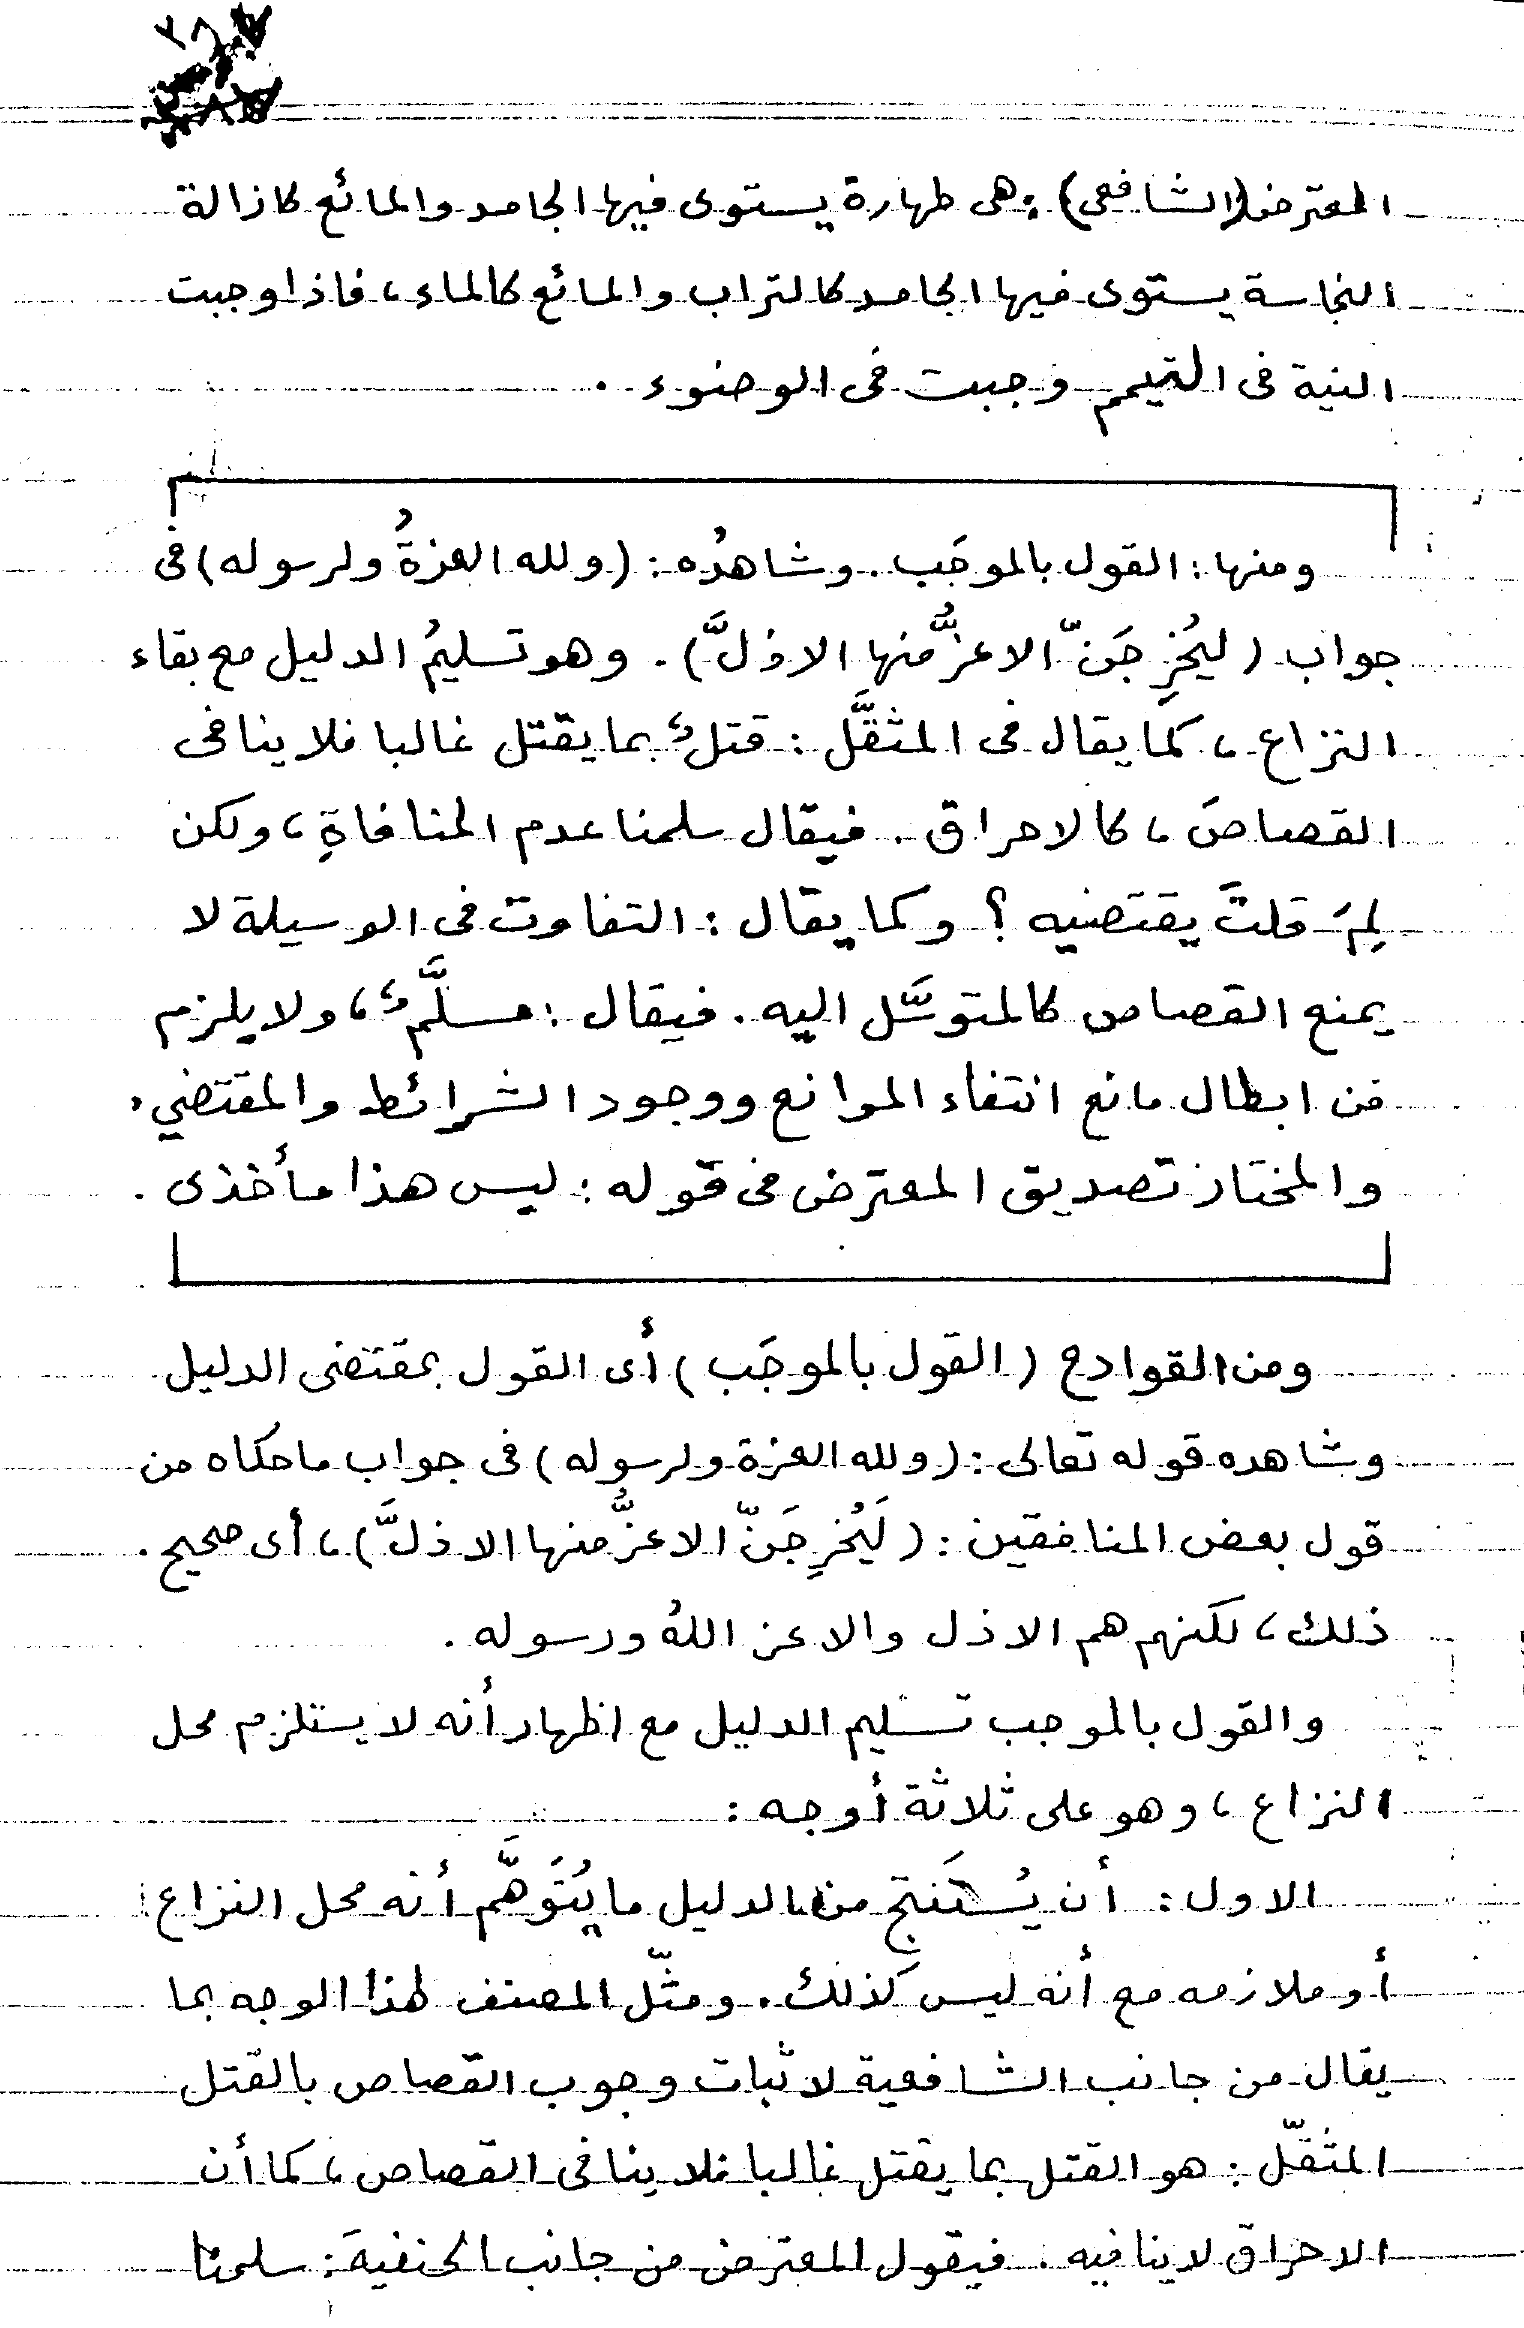 المعترض (الشافعى) : هى طهارة يستوى فيها الجامد والمائع كازالة
النجاسة يستوى فيها الجامد كالتراب والمائع كالماء ، فاذا وجبت
النية فى التيمم وجبت فى الوضوء .
ومنها : القول بالموجَب . وشاهدُه : (ولله العزةُ ولرسوله) فى
جواب (ليُخرِجَنّ الاعزُّ منها الاذلَّ) . وهو تسليمُ الدليل مع بقاء
النزاع ، كما يقال فى المثقَّل : قتلٌ بما يقتل غالبا فلا ينافى
القصاصَ ، كالاحراق . فيقال سلمنا عدم المنافاةِ ، ولكن
لِمَ قلتَ يقتضيه ؟ وكما يقال : التفاوت فى الوسيلة لا
يمنع القصاص كالمتوسَّل اليه . فيقال : مسلَّمٌ ، ولا يلزم
من ابطال مانع انتفاء الموانع ووجود الشرائط والمقتضي .
والمختار تصديق المعترض فى قوله : ليس هذا مأخذى .
ومن القوادح (القول بالموجَب) أى القول بمقتضى الدليل
وشاهده قوله تعالى : (ولله العزة ولرسوله) فى جواب ما حكاه من
قول بعض المنافقين : (لَيُخرِجَنّ الاعزُّ منها الاذلَّ) ، أى صحيح .
ذلك ، لكنهم هم الاذل والاعز اللهُ ورسوله .
والقول بالموجب تسليم الدليل مع اظهار أنه لا يستلزم محل
النزاع ، وهو على ثلاثة أوجه :
الاول : أن يُستَنتَج من الدليل ما يُتَوَهَّم أنه محل النزاع
أو ملازمه مع أنه ليس كذلك . ومثّل المصنف لهذا الوجه بما
يقال من جانب الشافعية لاثبات وجوب القصاص بالقتل
المثقّل : هو القتل بما يقتل غالبا فلا ينافى القصاص ، كما أن
الاحراق لا ينافيه . فيقول المعترض من جانب الحنفية : سلمنا